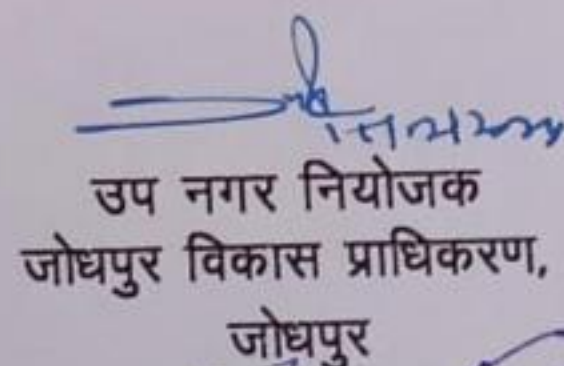 उप नगर नियोजक
जोधपुर विकास प्राधिकरण,
जोधपुर